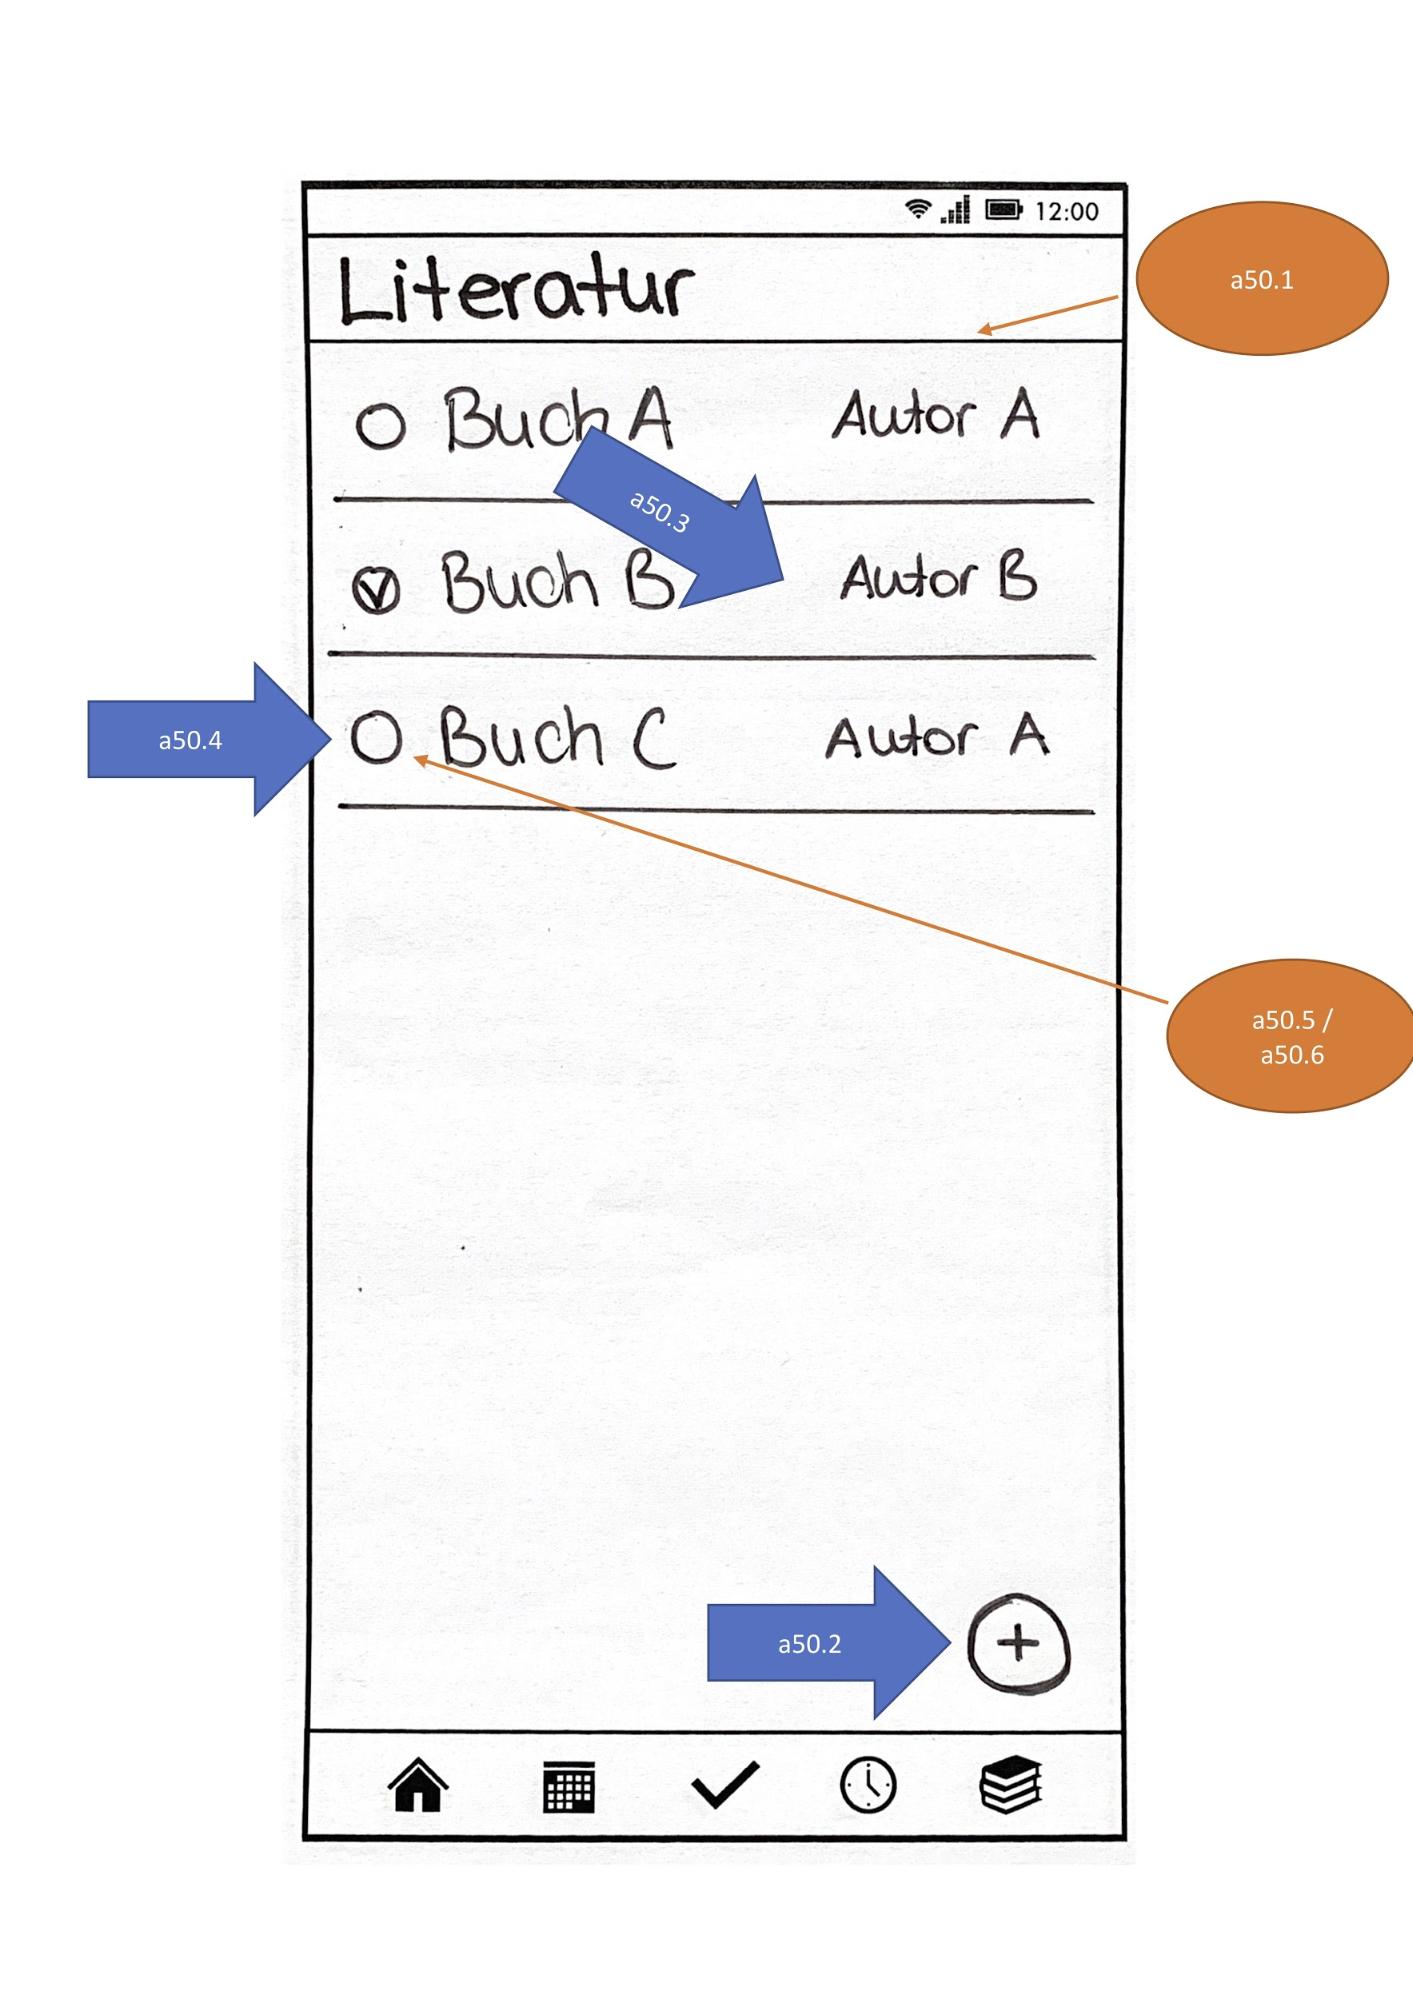 12:00
a50.1
Literatur
Buch A Autor A
a50.3
Buch B Autor B
a50.4
Buch C Autor A
a50.5 /
a50.6
a50.2
+